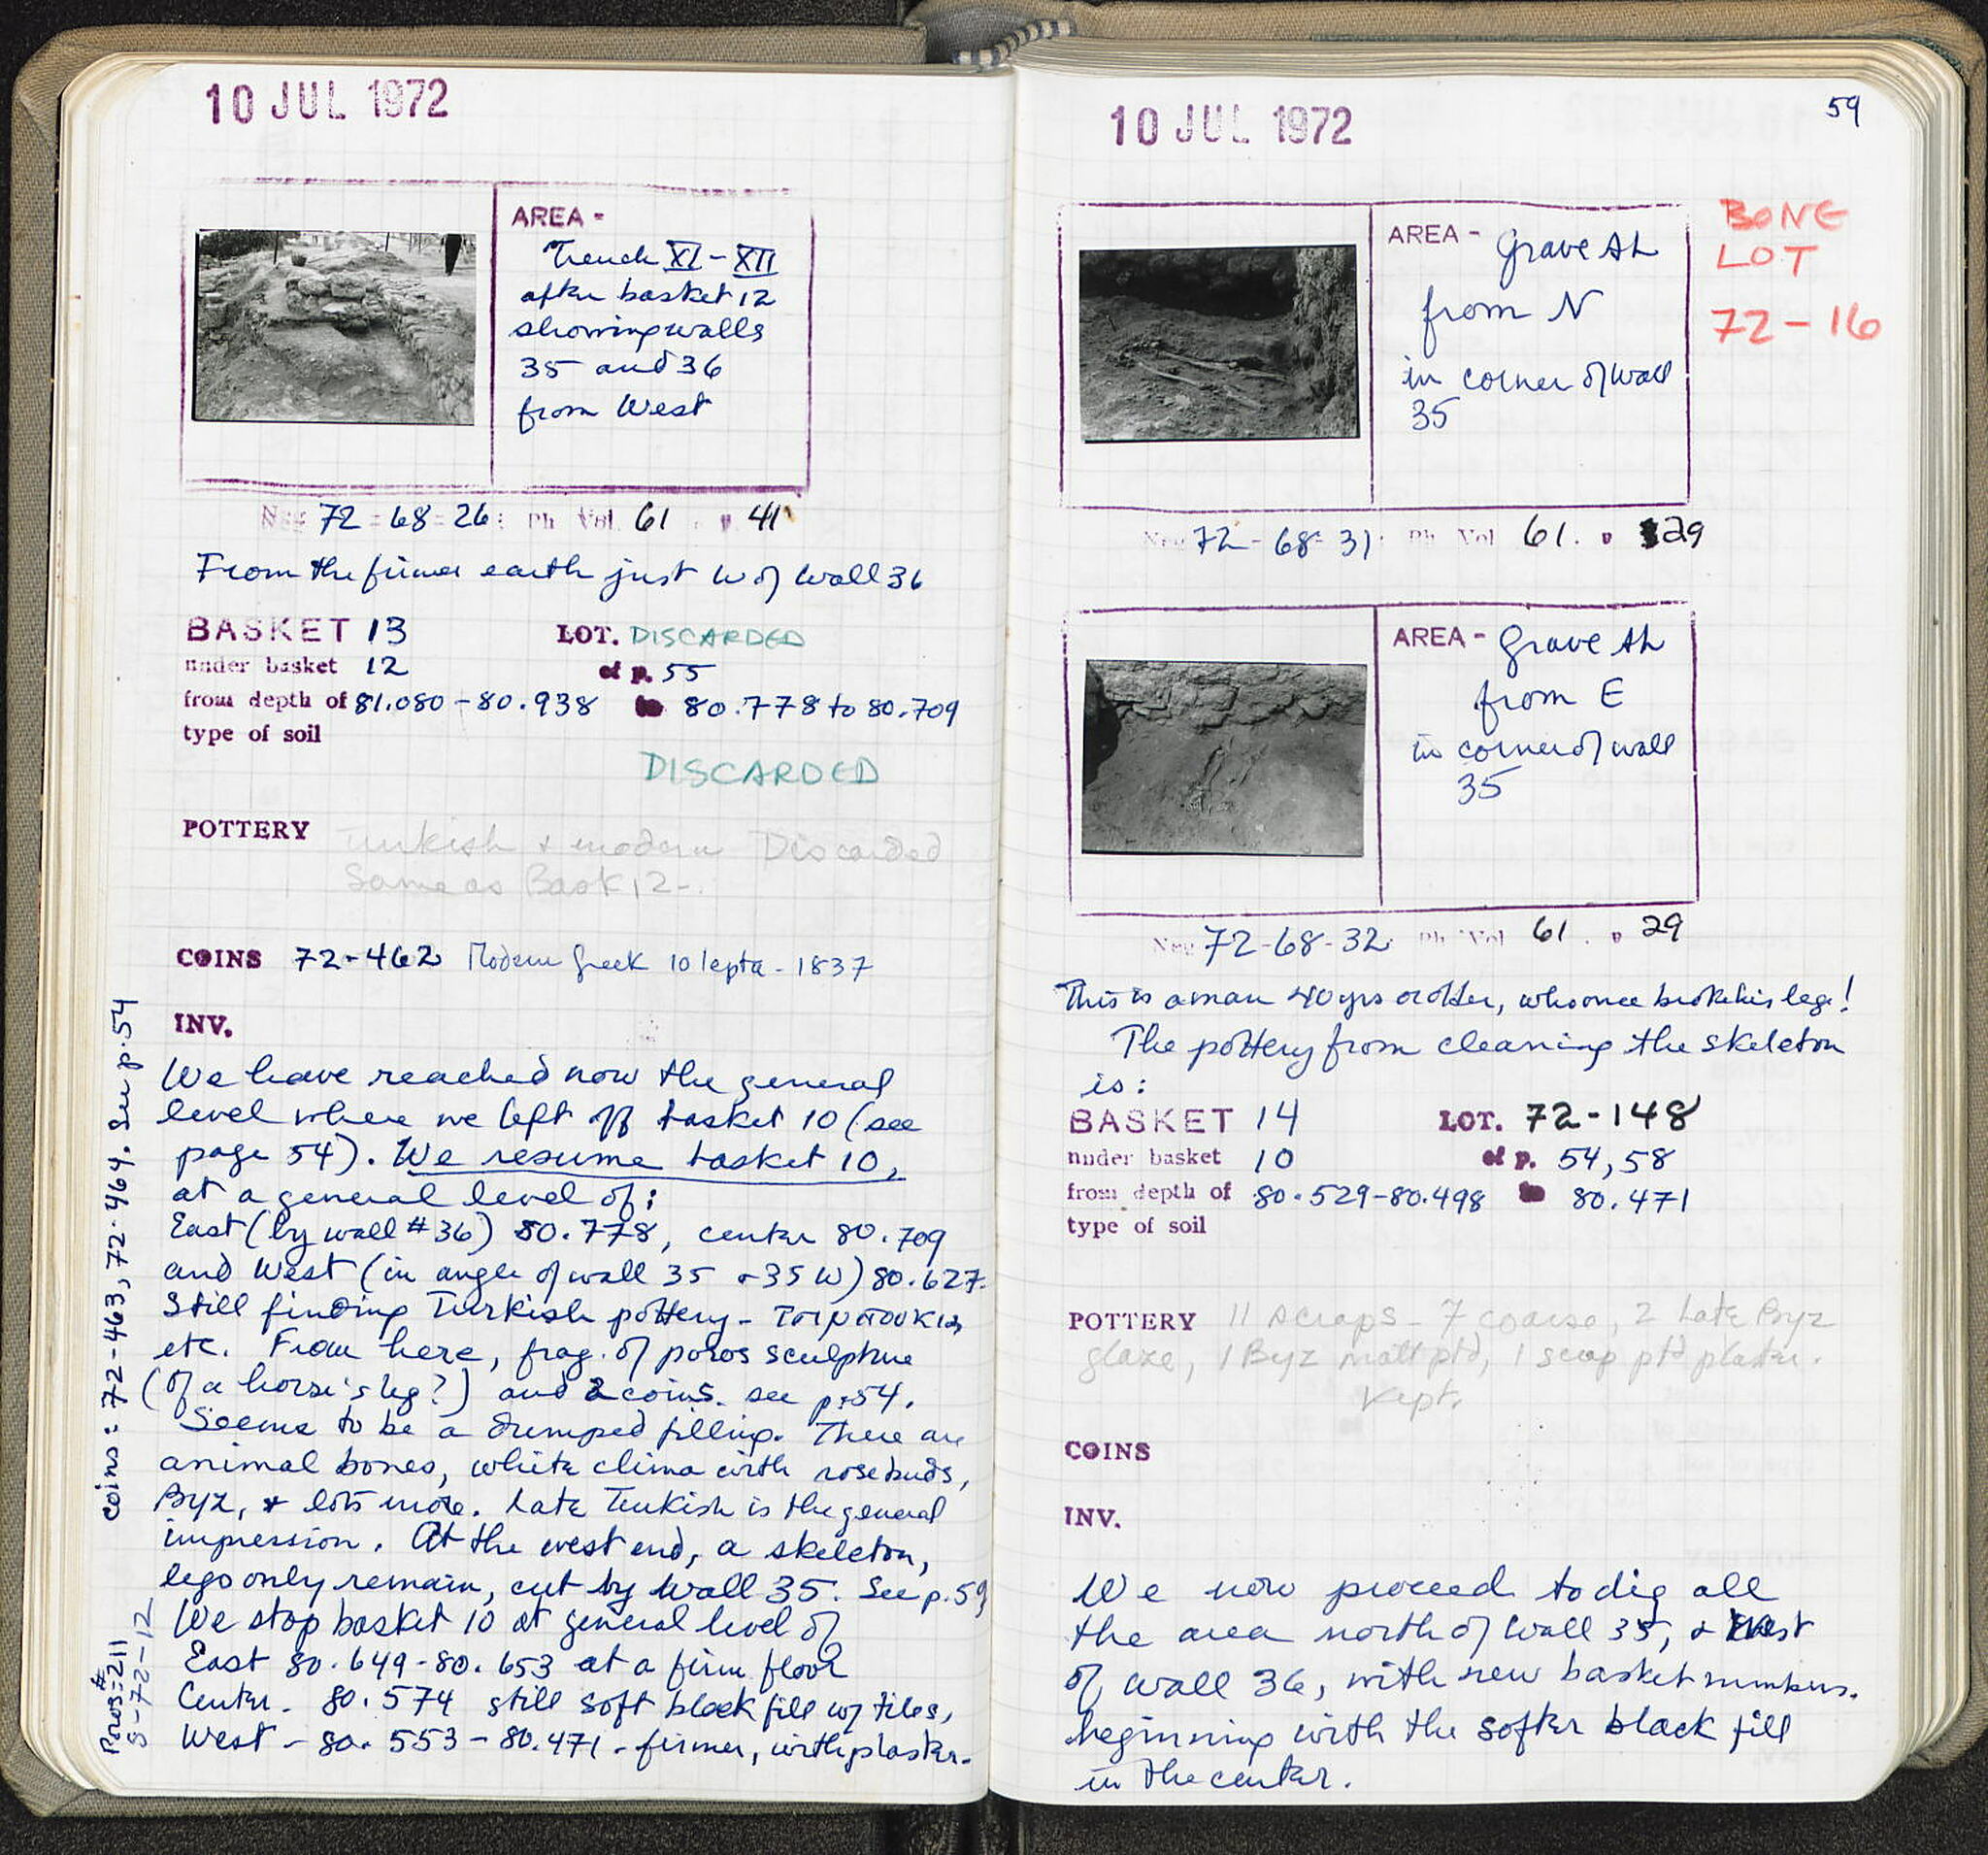 10 JUL 1972
AREA -
Trench XI - XII
after basket 12
showing walls
35 and 36
from West
Neg 72-68-26: Ph Vol. 61. p. 41
From the firmer earth just W of Wall 36
BASKET 13 LOT. DISCARDED
under basket 12 cf p. 55
from depth of 81.080 - 80.938 to 80.778 to 80.709
type of soil
DISCARDED
POTTERY Turkish & modern Discarded
Same as Bask 12-.
COINS 72-462 Modern Greek 10 lepta - 1837
INV.
We have reached now the general
level where we left off basket 10 (see
page 54). We resume basket 10,
at a general level of:
East (by wall #36) 80.778, center 80.709
and West (in angle of wall 35 + 35 W) 80.627.
Still finding Turkish pottery -
etc. From here, frag. of poros sculpture
(of a horse's leg?) and 2 coins. see p. 54.
Seems to be a dumped filling. There are
animal bones, white china with rosebuds,
Byz, & lots more. Late Turkish is the general
impression. At the west end, a skeleton,
legs only remain, cut by wall 35. See p. 59
We stop basket 10 at general level of
East 80.649-80.653 at a firm floor
Center - 80.574 still soft black fill w/ tiles,
West - 80.553 - 80.471 - firmer, with plaster.
coins: 72-463, 72-464. See p. 54
Poros # 211
S-72-12
59
10 JUL 1972
BONE
LOT
72-16
AREA - Grave AL
from N
in corner of wall
35
Neg 72-68-31: Ph Vol 61. p 29
AREA - Grave AL
from E
in corner of wall
35
Neg 72-68-32: Ph Vol 61. p 29
This is a man 40 yrs or older, who once broke his leg!
The pottery from cleaning the skeleton
is:
BASKET 14 LOT. 72-148
under basket 10 cf p. 54, 58
from depth of 80.529-80.498 to 80.471
type of soil
POTTERY 11 scraps - 7 coarse, 2 Late Byz
glaze, 1 Byz matt ptd, 1 scrap ptd plaster.
Kept.
COINS
INV.
We now proceed to dig all
the area north of Wall 35, & West
of wall 36, with new basket numbers.
beginning with the softer black fill
in the center.